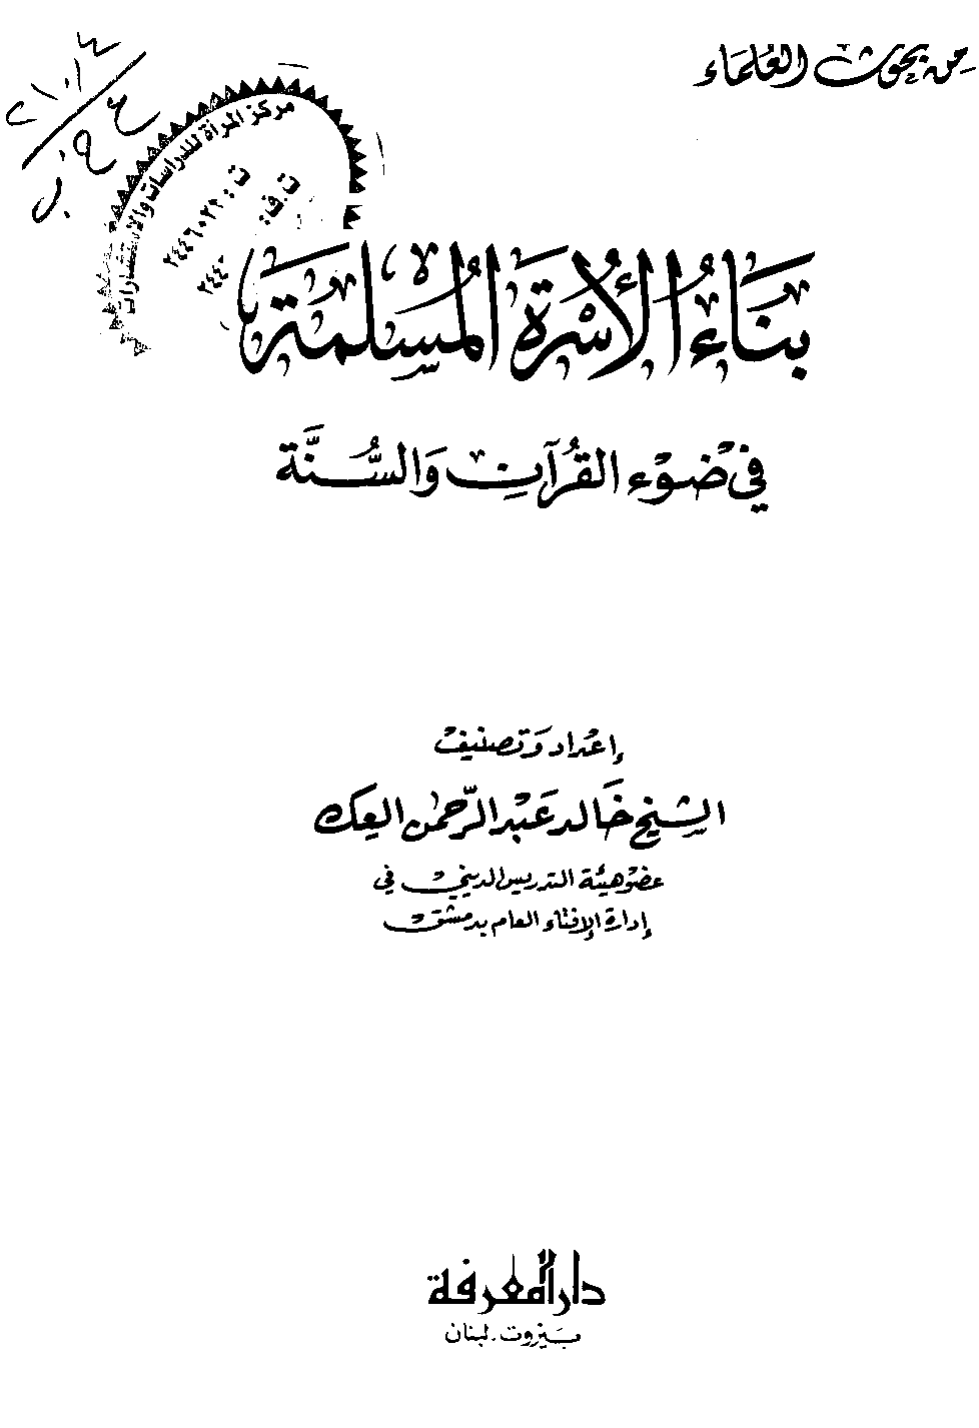 من بحوث العلماء
٢١٠,٤
ع خ. ب
مركز المرأة للدراسات والاستشارات
ت : ٢٤٤٦٠٢٢
ت.ف:
بِنَاءُ الأُسْرَةِ المُسْلِمَةِ
في ضَوْءِ القُرآنِ وَالسُّنَّة
إعْداد وَتصنيف
الشيخ خَالد عَبْد الرَّحمن العك
عضو هيئة التدريس الديني في
إدارة الإفتاء العام بدمشق
دار المعرفة
بَيْروت - لبنان